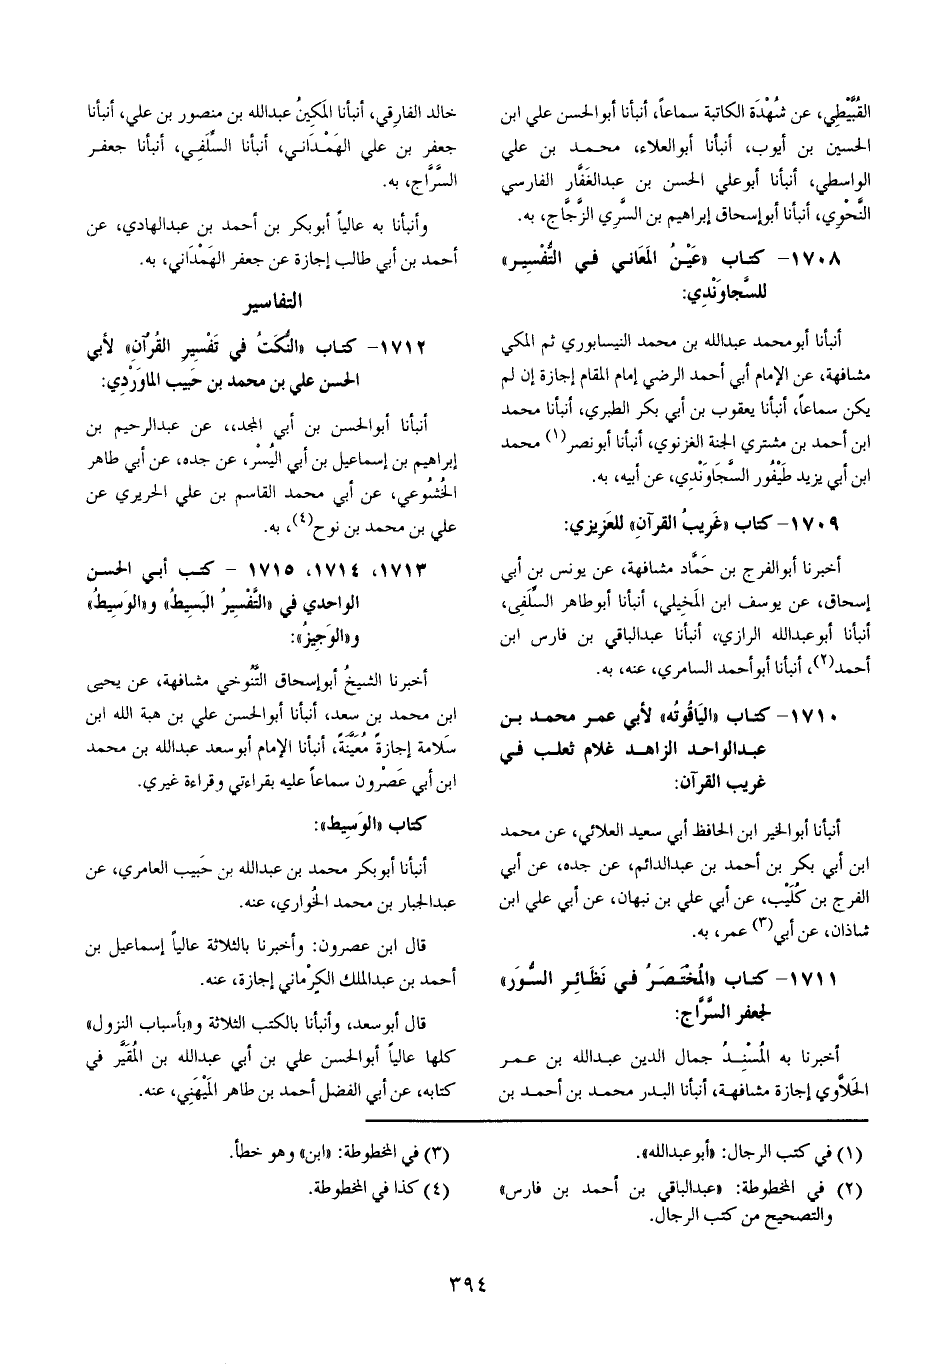 القُبَّيْطِي، عن شُهْدَة الكاتبة سماعاً، أنبأنا أبوالحسن علي ابن
الحسين بن أيوب، أنبأنا أبوالعلاء، محمد بن علي
الواسطي، أنبأنا أبوعلي الحسن بن عبدالغَفَّار الفارسي
النَّحْوِي، أنبأنا أبوإسحاق إبراهيم بن السَّري الزَّجَّاج، به.
١٧٠٨- كتاب «عَيْنُ المَعَاني في التُّفْسِير»
للسَّجاوَنْدِي:
أنبأنا أبومحمد عبدالله بن محمد النيسابوري ثم المكي
مشافهة، عن الإمام أبي أحمد الرضي إمام المقام إجازة إن لم
يكن سماعاً، أنبأنا يعقوب بن أبي بكر الطبري، أنبأنا محمد
ابن أحمد بن مشتري الجنة الغزنوي، أنبأنا أبونصر(١) محمد
ابن أبي يزيد طَيْفُور السَّجَاوَنْدِي، عن أبيه، به.
١٧٠٩- كتاب «غَرِيبُ القرآن» للعَزِيزي:
أخبرنا أبوالفرج بن حَمَّاد مشافهة، عن يونس بن أبي
إسحاق، عن يوسف ابن المخيلي، أنبأنا أبوطاهر السِّلَفِى،
أنبأنا أبوعبدالله الرازي، أنبأنا عبدالباقي بن فارس ابن
أحمد(٢)، أنبأنا أبوأحمد السامري، عنه، به.
١٧١٠- كتاب «اليَاقُوتُه» لأبي عمر محمد بن
عبدالواحد الزاهد غلام ثعلب في
غريب القرآن:
أنبأنا أبوالخير ابن الحافظ أبي سعيد العلائي، عن محمد
ابن أبي بكر بن أحمد بن عبدالدائم، عن جده، عن أبي
الفرج بن كُلَيْب، عن أبي علي بن نبهان، عن أبي علي ابن
شاذان، عن أبي(٣) عمر، به.
١٧١١- كتاب «المُخْتَصَرُ في نَظَائِرِ السُّوَر»
لجعفر السَّرَّاج:
أخبرنا به المُسْنِدُ جمال الدين عبدالله بن عمر
الحَلاَّوي إجازة مشافهة، أنبأنا البدر محمد بن أحمد بن
خالد الفارِقي، أنبأنا المَكِينُ عبدالله بن منصور بن علي، أنبأنا
جعفر بن علي الهَمْدَاني، أنبأنا السِّلَفِي، أنبأنا جعفر
السَّرَّاج، به.
وأنبأنا به عالياً أبوبكر بن أحمد بن عبدالهادي، عن
أحمد بن أبي طالب إجازة عن جعفر الهَمْدَاني، به.
التفاسير
١٧١٢- كتاب «النُّكَتُ في تَفْسِيرِ القُرْآن» لأبي
الحسن علي بن محمد بن حَبيب الماوَرْدِي:
أنبأنا أبوالحسن بن أبي المجد،، عن عبدالرحيم بن
إبراهيم بن إسماعيل بن أبي اليُسْر، عن جده، عن أبي طاهر
الخُشُوعي، عن أبي محمد القاسم بن علي الحريري عن
علي بن محمد بن نوح(٤)، به.
١٧١٣، ١٧١٤، ١٧١٥ - كتب أبي الحسن
الواحدي في «التَّفْسِيرُ البَسِيطُ» و«الوَسِيطُ»
و«الوَجِيزُ»:
أخبرنا الشيخُ أبوإسحاق التَّنُوخي مشافهة، عن يحيى
ابن محمد بن سعد، أنبأنا أبوالحسن علي بن هبة الله ابن
سَلامة إجازةً مُعَيَّنَةً، أنبأنا الإمام أبوسعد عبدالله بن محمد
ابن أبي عَصْرون سماعاً عليه بقراءتي وقراءة غيري.
كتاب «الوَسِيط»:
أنبأنا أبوبكر محمد بن عبدالله بن حَبيب العامري، عن
عبدالجبار بن محمد الخُواري، عنه.
قال ابن عصرون: وأخبرنا بالثلاثة عالياً إسماعيل بن
أحمد بن عبدالملك الكِرْماني إجازة، عنه.
قال أبوسعد، وأنبأنا بالكتب الثلاثة و«بأسباب النزول»
كلها عالياً أبوالحسن علي بن أبي عبدالله بن المُقَيَّر في
كتابه، عن أبي الفضل أحمد بن طاهر المَيْهَنِي، عنه.
(١) في كتب الرجال: «أبوعبدالله».
(٢) في المخطوطة: «عبدالباقي بن أحمد بن فارس»
والتصحيح من كتب الرجال.
(٣) في المخطوطة: «ابن» وهو خطأ.
(٤) كذا في المخطوطة.
٣٩٤